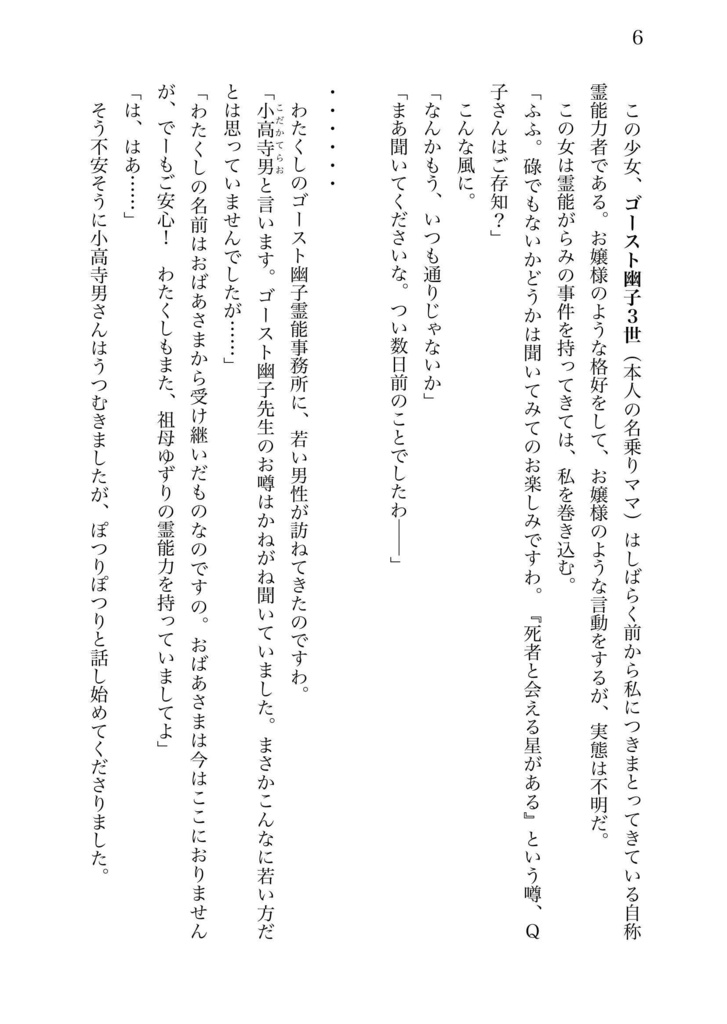 6
この少女、ゴースト幽子3世（本人の名乗りママ）はしばらく前から私につきまとってきている自称
霊能力者である。お嬢様のような格好をして、お嬢様のような言動をするが、実態は不明だ。
この女は霊能がらみの事件を持ってきては、私を巻き込む。
「ふふ。碌でもないかどうかは聞いてみてのお楽しみですわ。『死者と会える星がある』という噂、Q
子さんはご存知？」
こんな風に。
「なんかもう、いつも通りじゃないか」
「まあ聞いてくださいな。つい数日前のことでしたわ――」
・・・・・・
わたくしのゴースト幽子霊能事務所に、若い男性が訪ねてきたのですわ。
「小高寺男と言います。ゴースト幽子先生のお噂はかねがね聞いていました。まさかこんなに若い方だ
こだかてらお
とは思っていませんでしたが……」
「わたくしの名前はおばあさまから受け継いだものなのですの。おばあさまは今はここにおりません
が、でーもご安心！　わたくしもまた、祖母ゆずりの霊能力を持っていましてよ」
「は、はあ……」
そう不安そうに小高寺男さんはうつむきましたが、ぽつりぽつりと話し始めてくださりました。